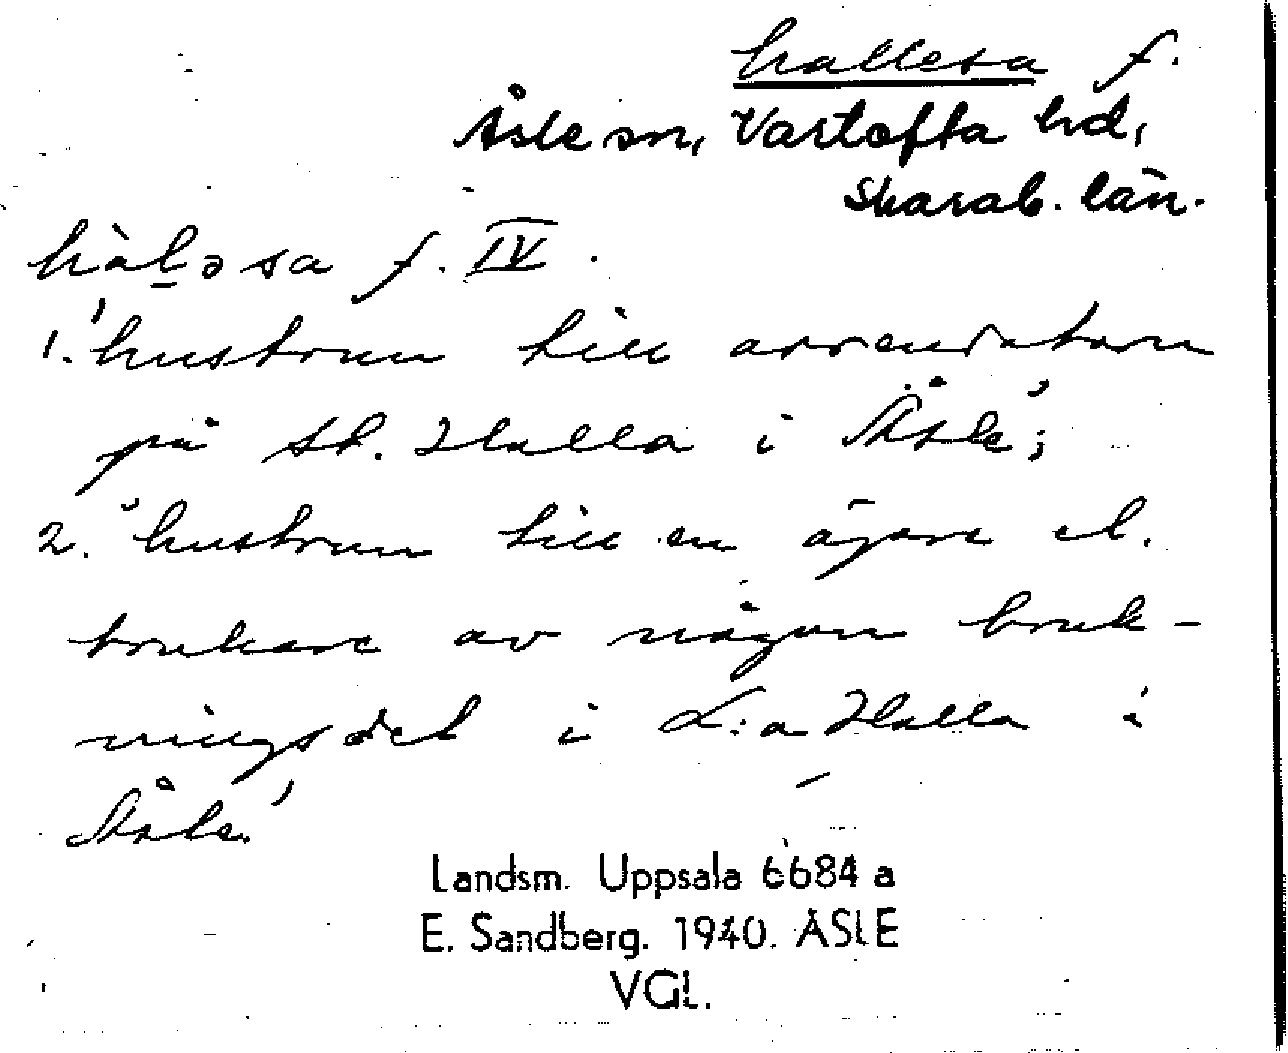 hallesa f.
Åsle sn, Vartofta hd,
Skarab. län.
hàl̠əsa f. IV.
1. 'hustrun till arrendatorn
på St. Halla i Åsle';
2. 'hustrun till en ägare el.
brukare av någon bruk-
ningsdel i L:a Halla i
Åsle.'
Landsm. Uppsala 6684 a
E. Sandberg. 1940. ÅSLE
VGL.